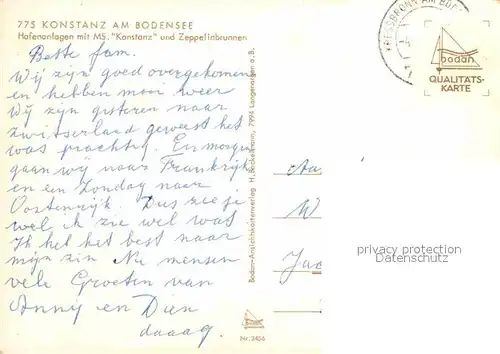 775 KONSTANZ AM BODENSEE
Hafenanlagen mit MS. "Konstanz" und Zeppelinbrunnen
Beste fam.
Wij zijn goed overgekomen
en hebben mooi weer
Wij zijn gisteren naar
zwitserland geweest het
was prachtig. En morgen
gaan wij naar Frankrijk
en en Zondag naar
Oostenrijk. Dus zie je
wel ik zie wel wat
Ik het het best naar
mijn zin Nu mensen
vele Groeten van
Annij en Dien
daaag.
Bodan-Ansichtskartenverlag H. Bockelmann, 7994 Langenargen a. B.
Nr. 3456
BRONN AM BOD
bodan
QUALITÄTS-
KARTE
Aa
W
Jac
privacy protection
www.ansichtskarten-center.de